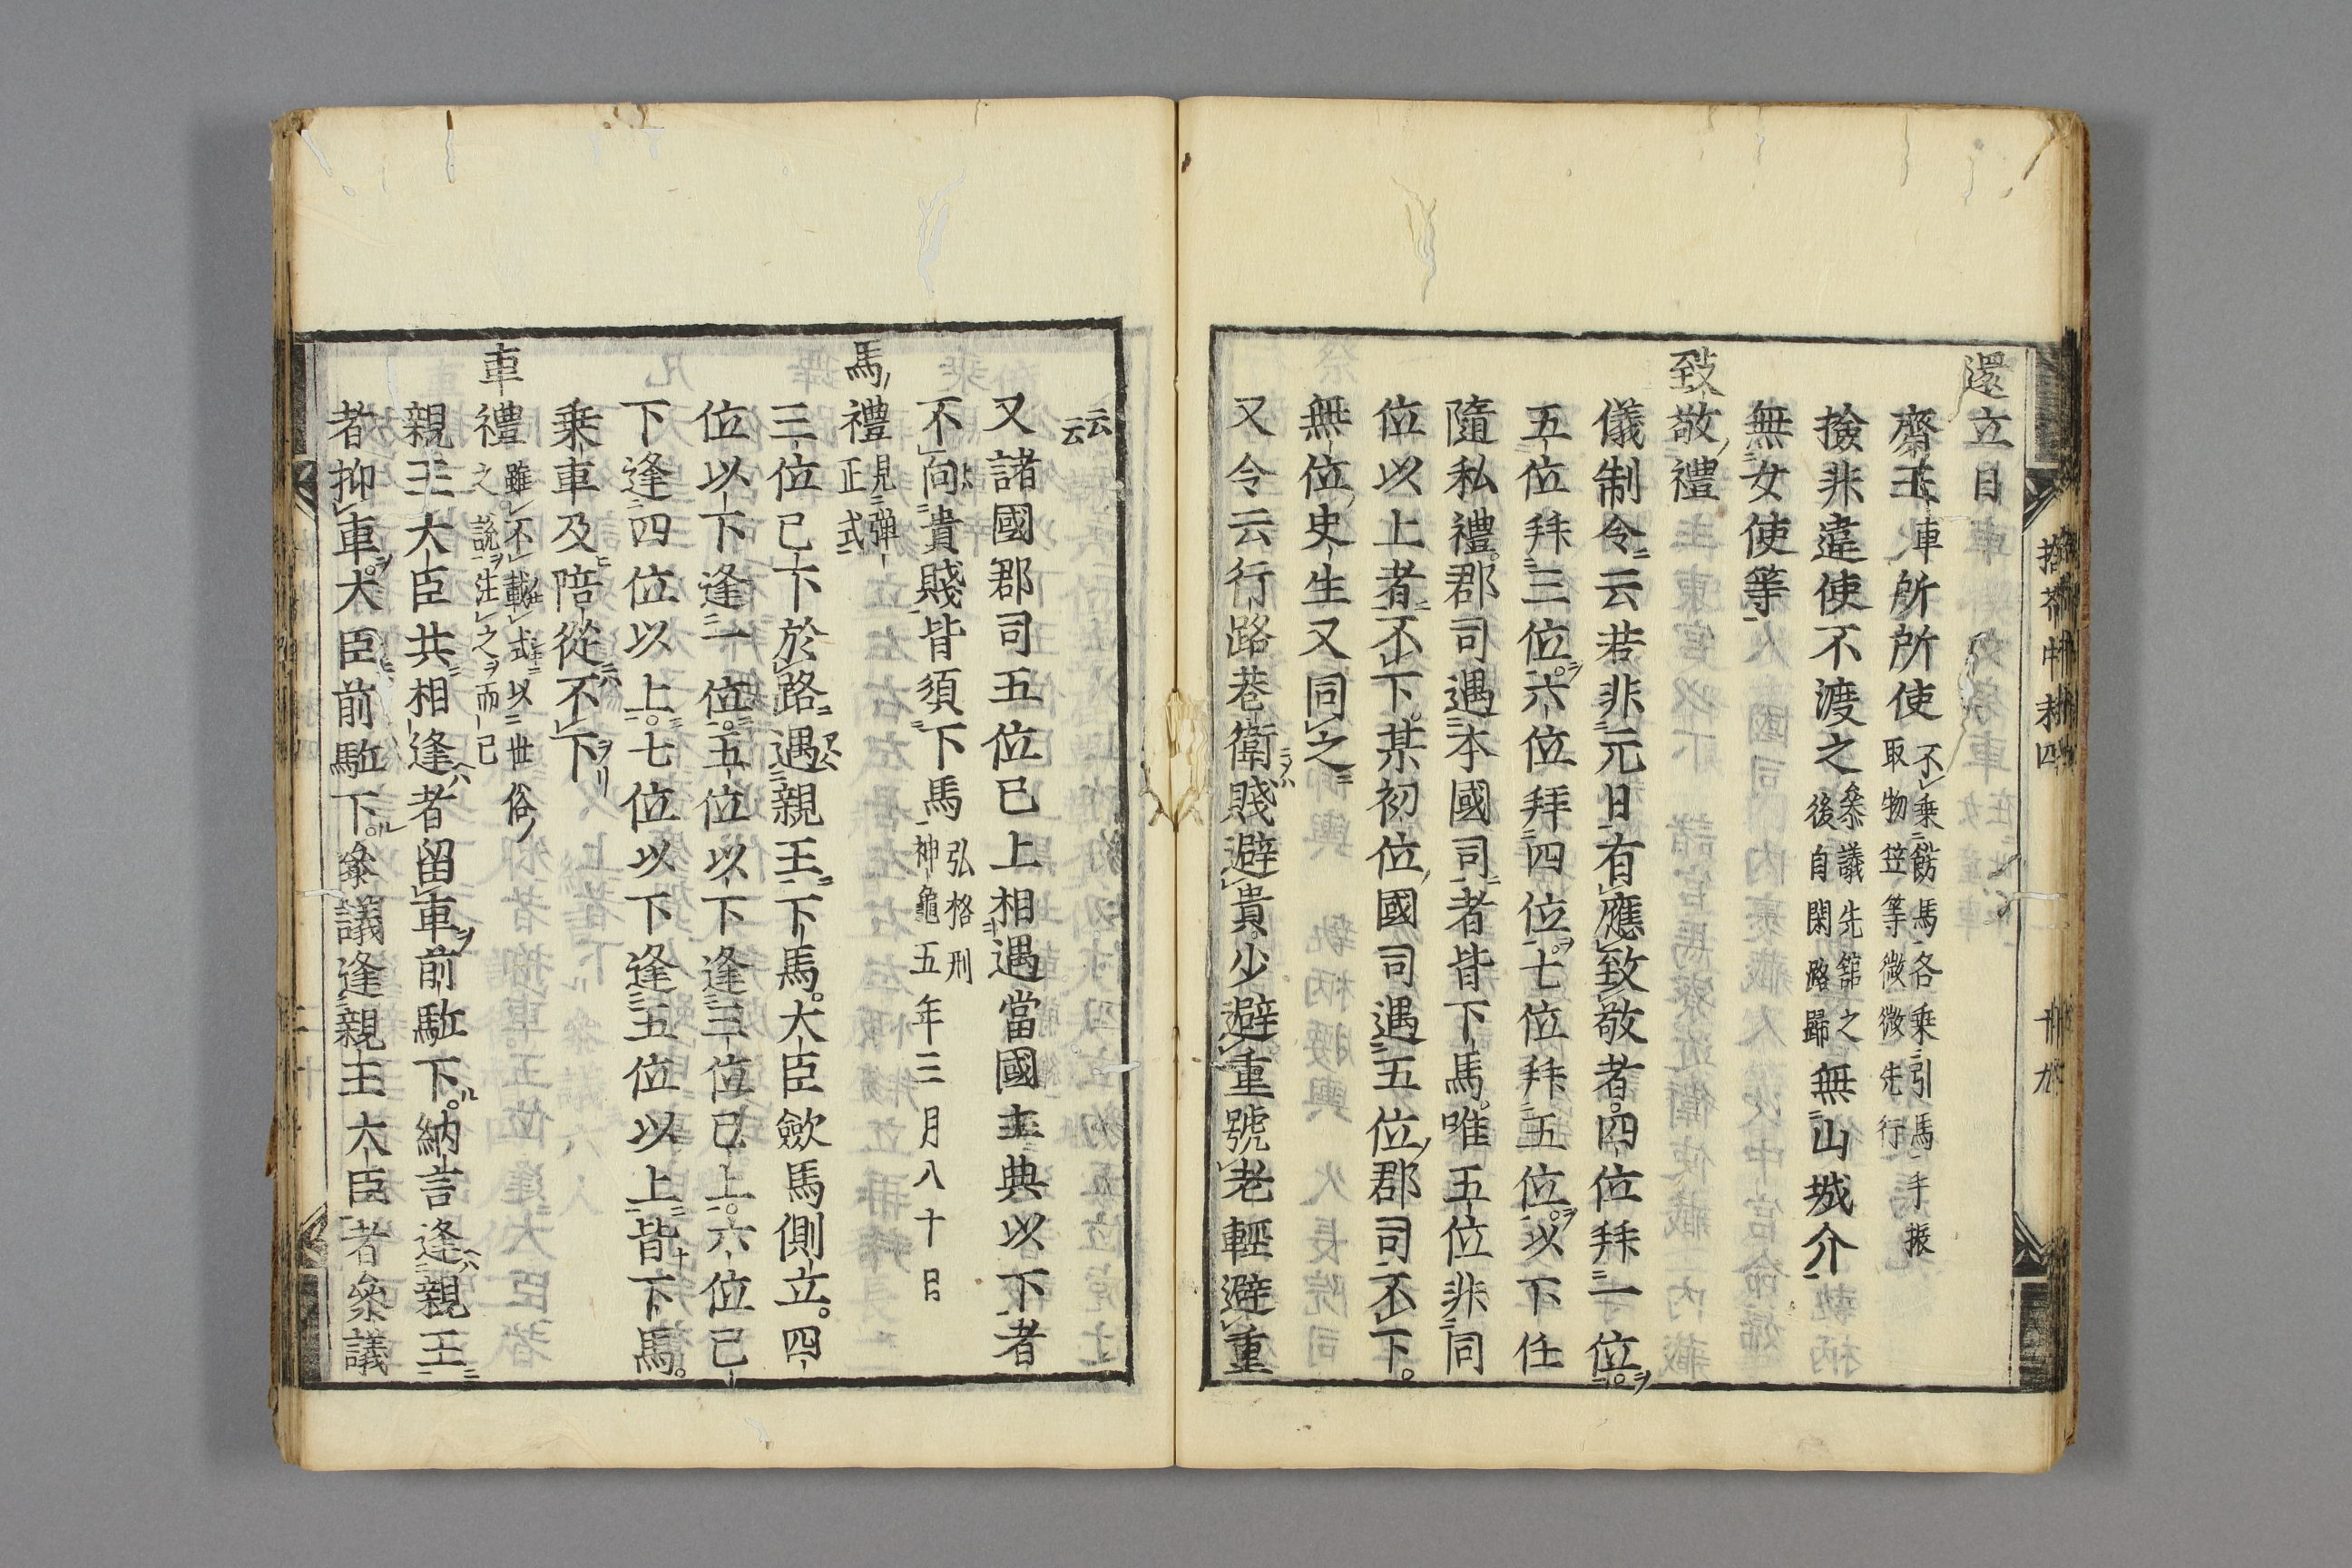 還立日
齋王車所所使不乗餝馬各乗引馬手振
取物笠等微微先行
撿非違使不渡之叅議先舘之
後自閑路歸無山城介
無女使等
致敬禮
儀制令云若非元日有應致敬者四位拜一位
五位拜三位六位拜四位七位拜五位以下任
隨私禮郡司遇本國司者皆下馬唯五位非同
位以上者不下某初位國司遇五位郡司不下
無位史生又同之
又令云行路巷衢賤避貴少避重號老輕避重
拾芥中末四 卅九
云云
又諸國郡司五位已上相遇當國主典以下者
不向貴賤皆須下馬弘格刑
神龜五年三月八十日
馬禮見彈
正式
三位已下於路遇親王下馬大臣歛馬側立四
位以下逢一位五位以下逢三位已上六位已
下逢四位以上七位以下逢五位以上皆下馬
乗車及陪從不下
車禮雖不載式以世俗
之說注之而已
親王大臣共相逢者留車前駈下納言逢親王
者抑車大臣前駈下叅議逢親王大臣者叅議